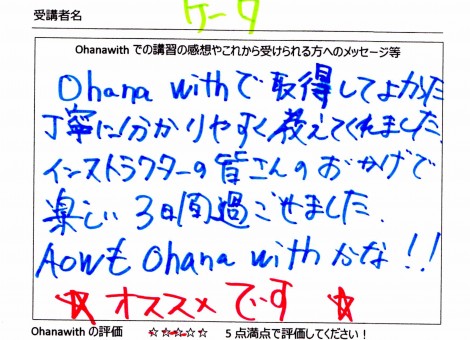 受講者名 ケータ
Ohanawith での講習の感想やこれから受けられる方へのメッセージ等
Ohana withで取得してよかった
丁寧に分かりやすく教えてくれました
インストラクターの皆さんのおかげで
楽しい3日間過ごせました.
AOWもOhana withかな!!
☆オススメです☆
Ohanawith の評価 ☆☆☆☆☆ 5 点満点で評価してください!